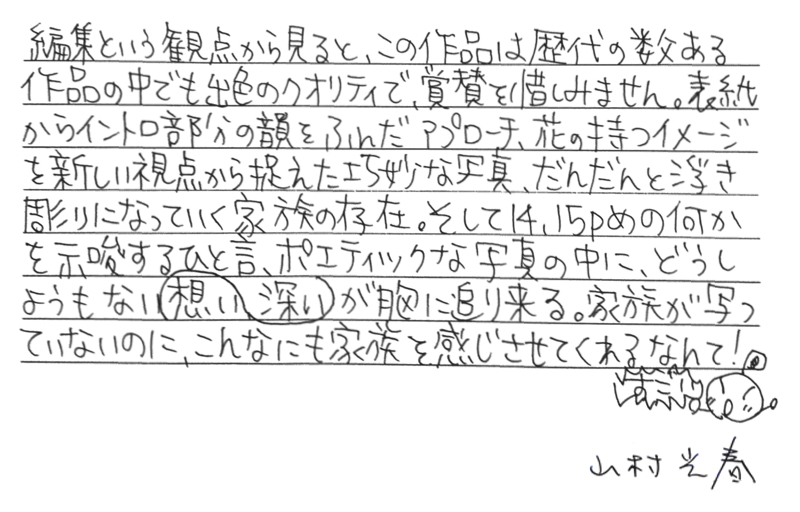 編集という観点から見ると、この作品は歴代の数ある
作品の中でも出色のクオリティで、賞賛を惜しみません。表紙
からイントロ部分の韻をふんだアプローチ、花の持つイメージ
を新しい視点から捉えた巧妙な写真、だんだんと浮き
彫りになっていく家族の存在。そして14,15pめの何か
を示唆するひと言、ポエティックな写真の中に、どうし
ようもない想い深いが胸に迫り来る。家族が写っ
ていないのに、こんなにも家族を感じさせてくれるなんて!
山村光春